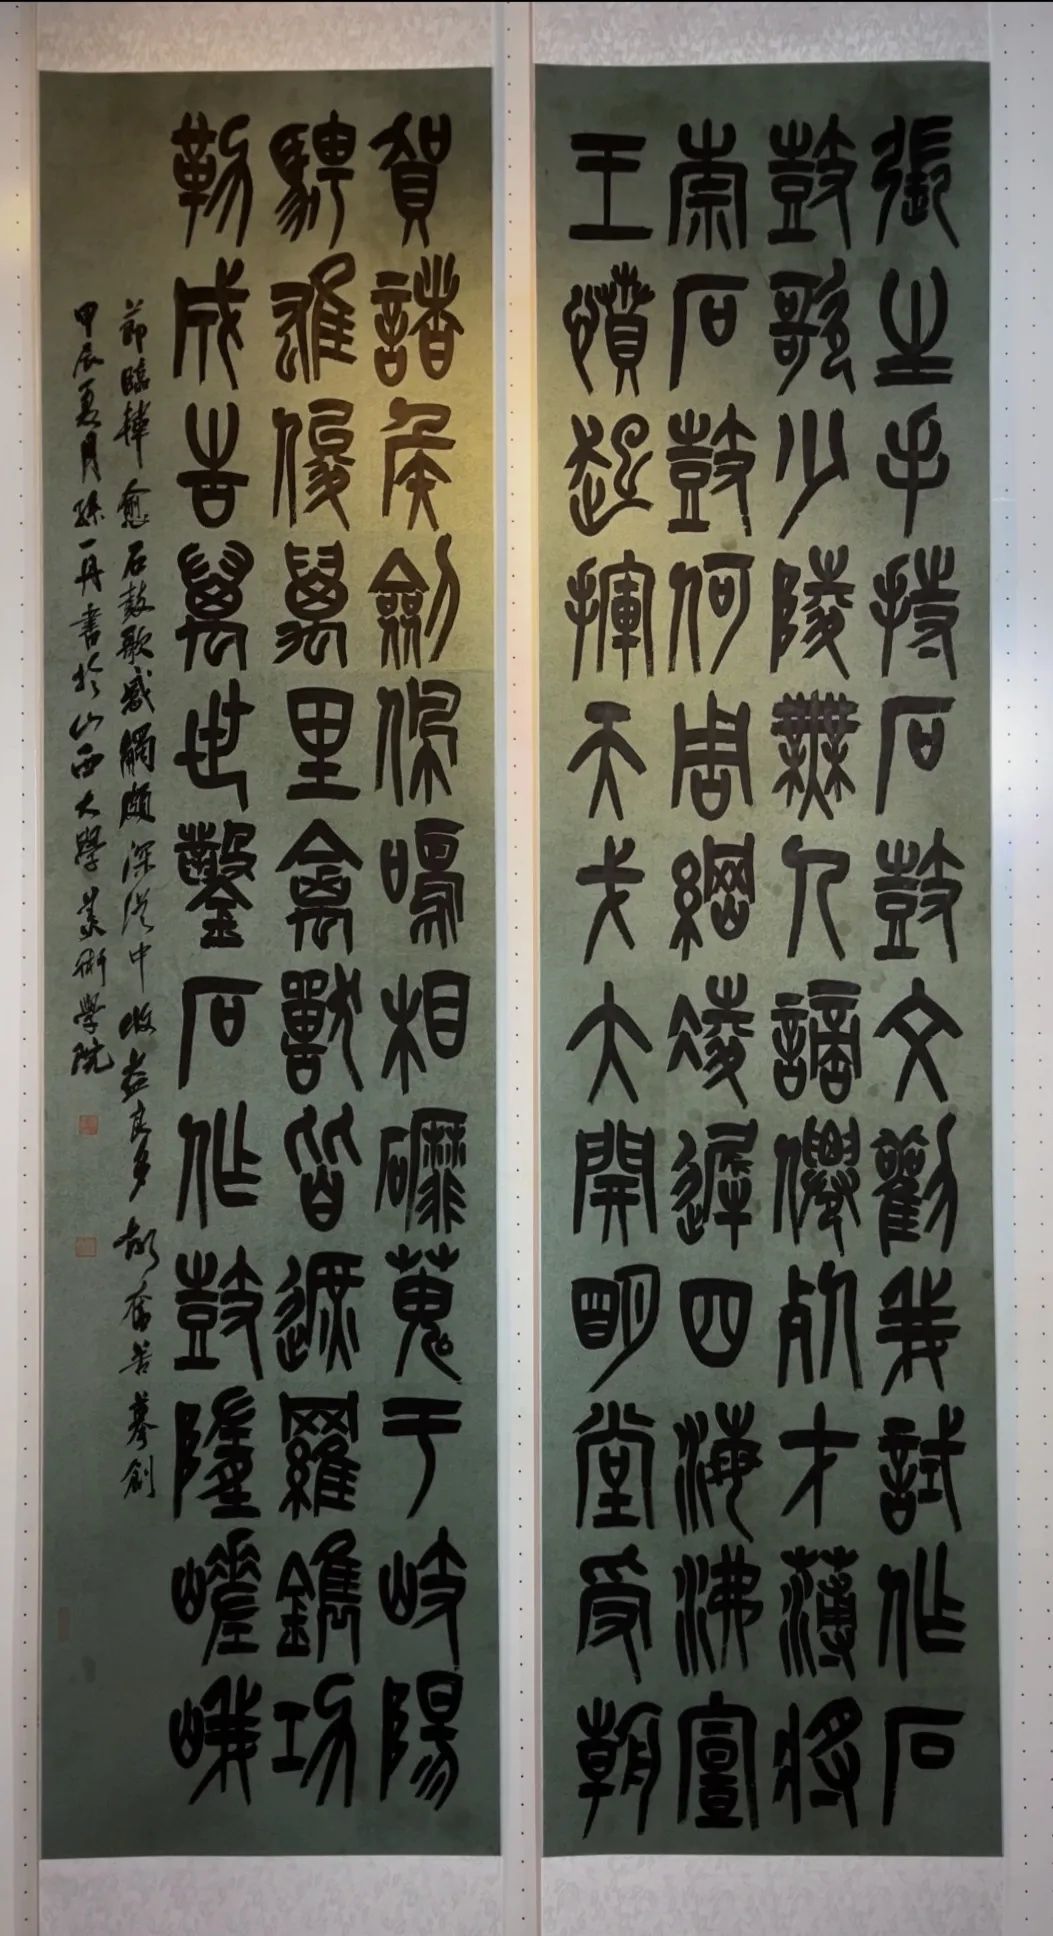 張生手持石鼓文勸我試作石
鼓歌少陵無人謫僊死才薄將
柰石鼓何周綱凌遲四海沸宣
王憤起揮天戈大開明堂受朝
賀諸侯劍佩鳴相磨蒐于岐陽
騁雄俊萬里禽獸皆遮羅鐫功
勒成告萬世鑿石作鼓隳嵯峨
節臨韓愈石鼓歌感觸頗深從中收益良多故奮摹創
甲辰夏月孫一丹書於山西大學美術学院